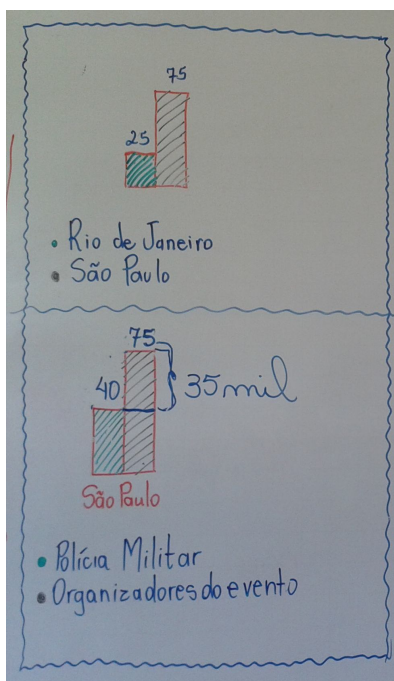 75
25
Rio de Janeiro
São Paulo
75
40
35 mil
São Paulo
Polícia Militar
Organizadores do evento